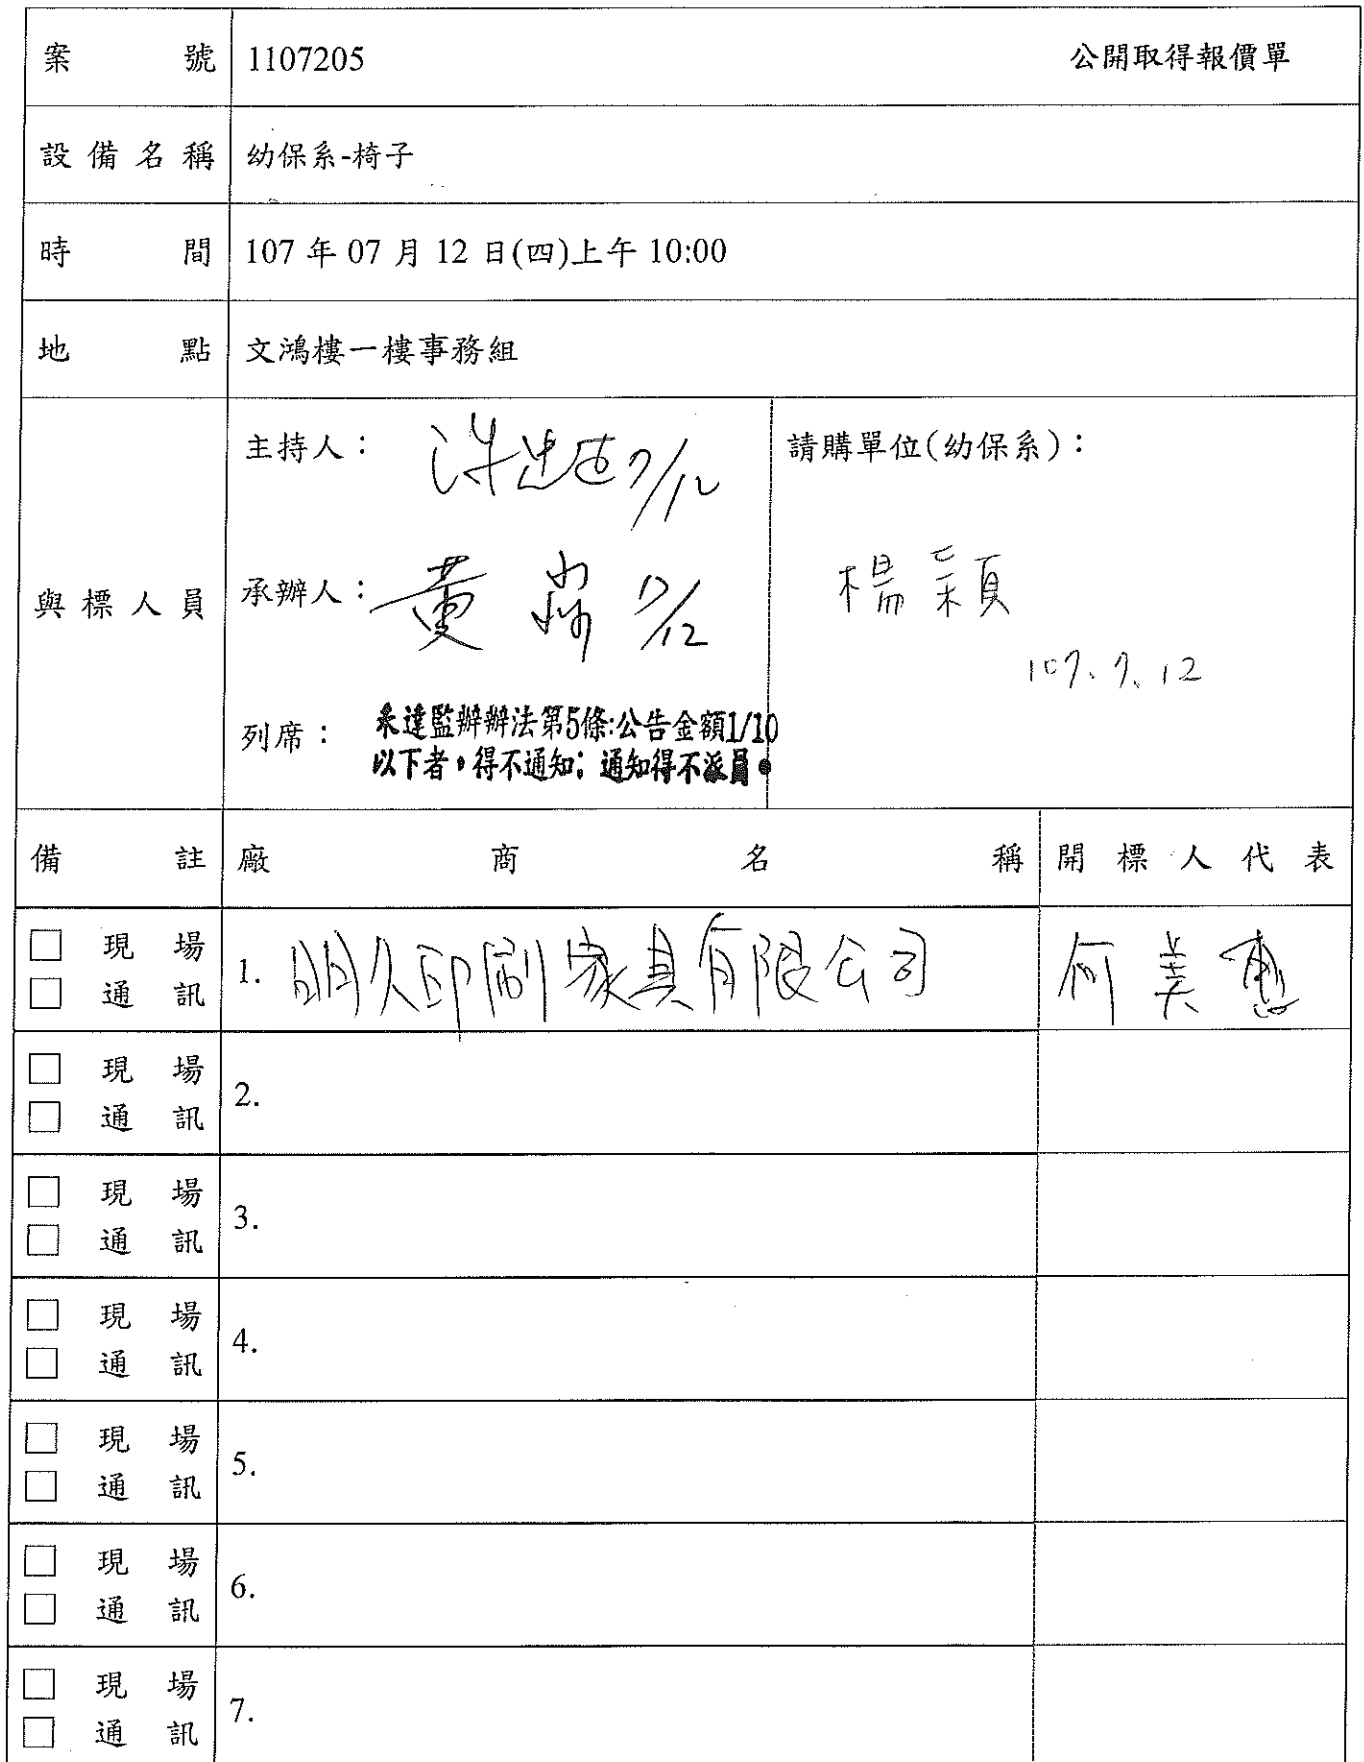 案號 1107205 公開取得報價單
設備名稱 幼保系-椅子
時間 107 年 07 月 12 日(四)上午 10:00
地點 文鴻樓一樓事務組
與標人員
主持人： 7/12
承辦人： 黃 7/12
列席： 未達監辦辦法第5條:公告金額1/10
以下者，得不通知；通知得不派員。
請購單位(幼保系)：
楊穎
107.7.12
備註 廠商名稱 開標人代表
□ 現場
□ 通訊
1. 明久印刷家具有限公司 何美
□ 現場
□ 通訊
2.
□ 現場
□ 通訊
3.
□ 現場
□ 通訊
4.
□ 現場
□ 通訊
5.
□ 現場
□ 通訊
6.
□ 現場
□ 通訊
7.